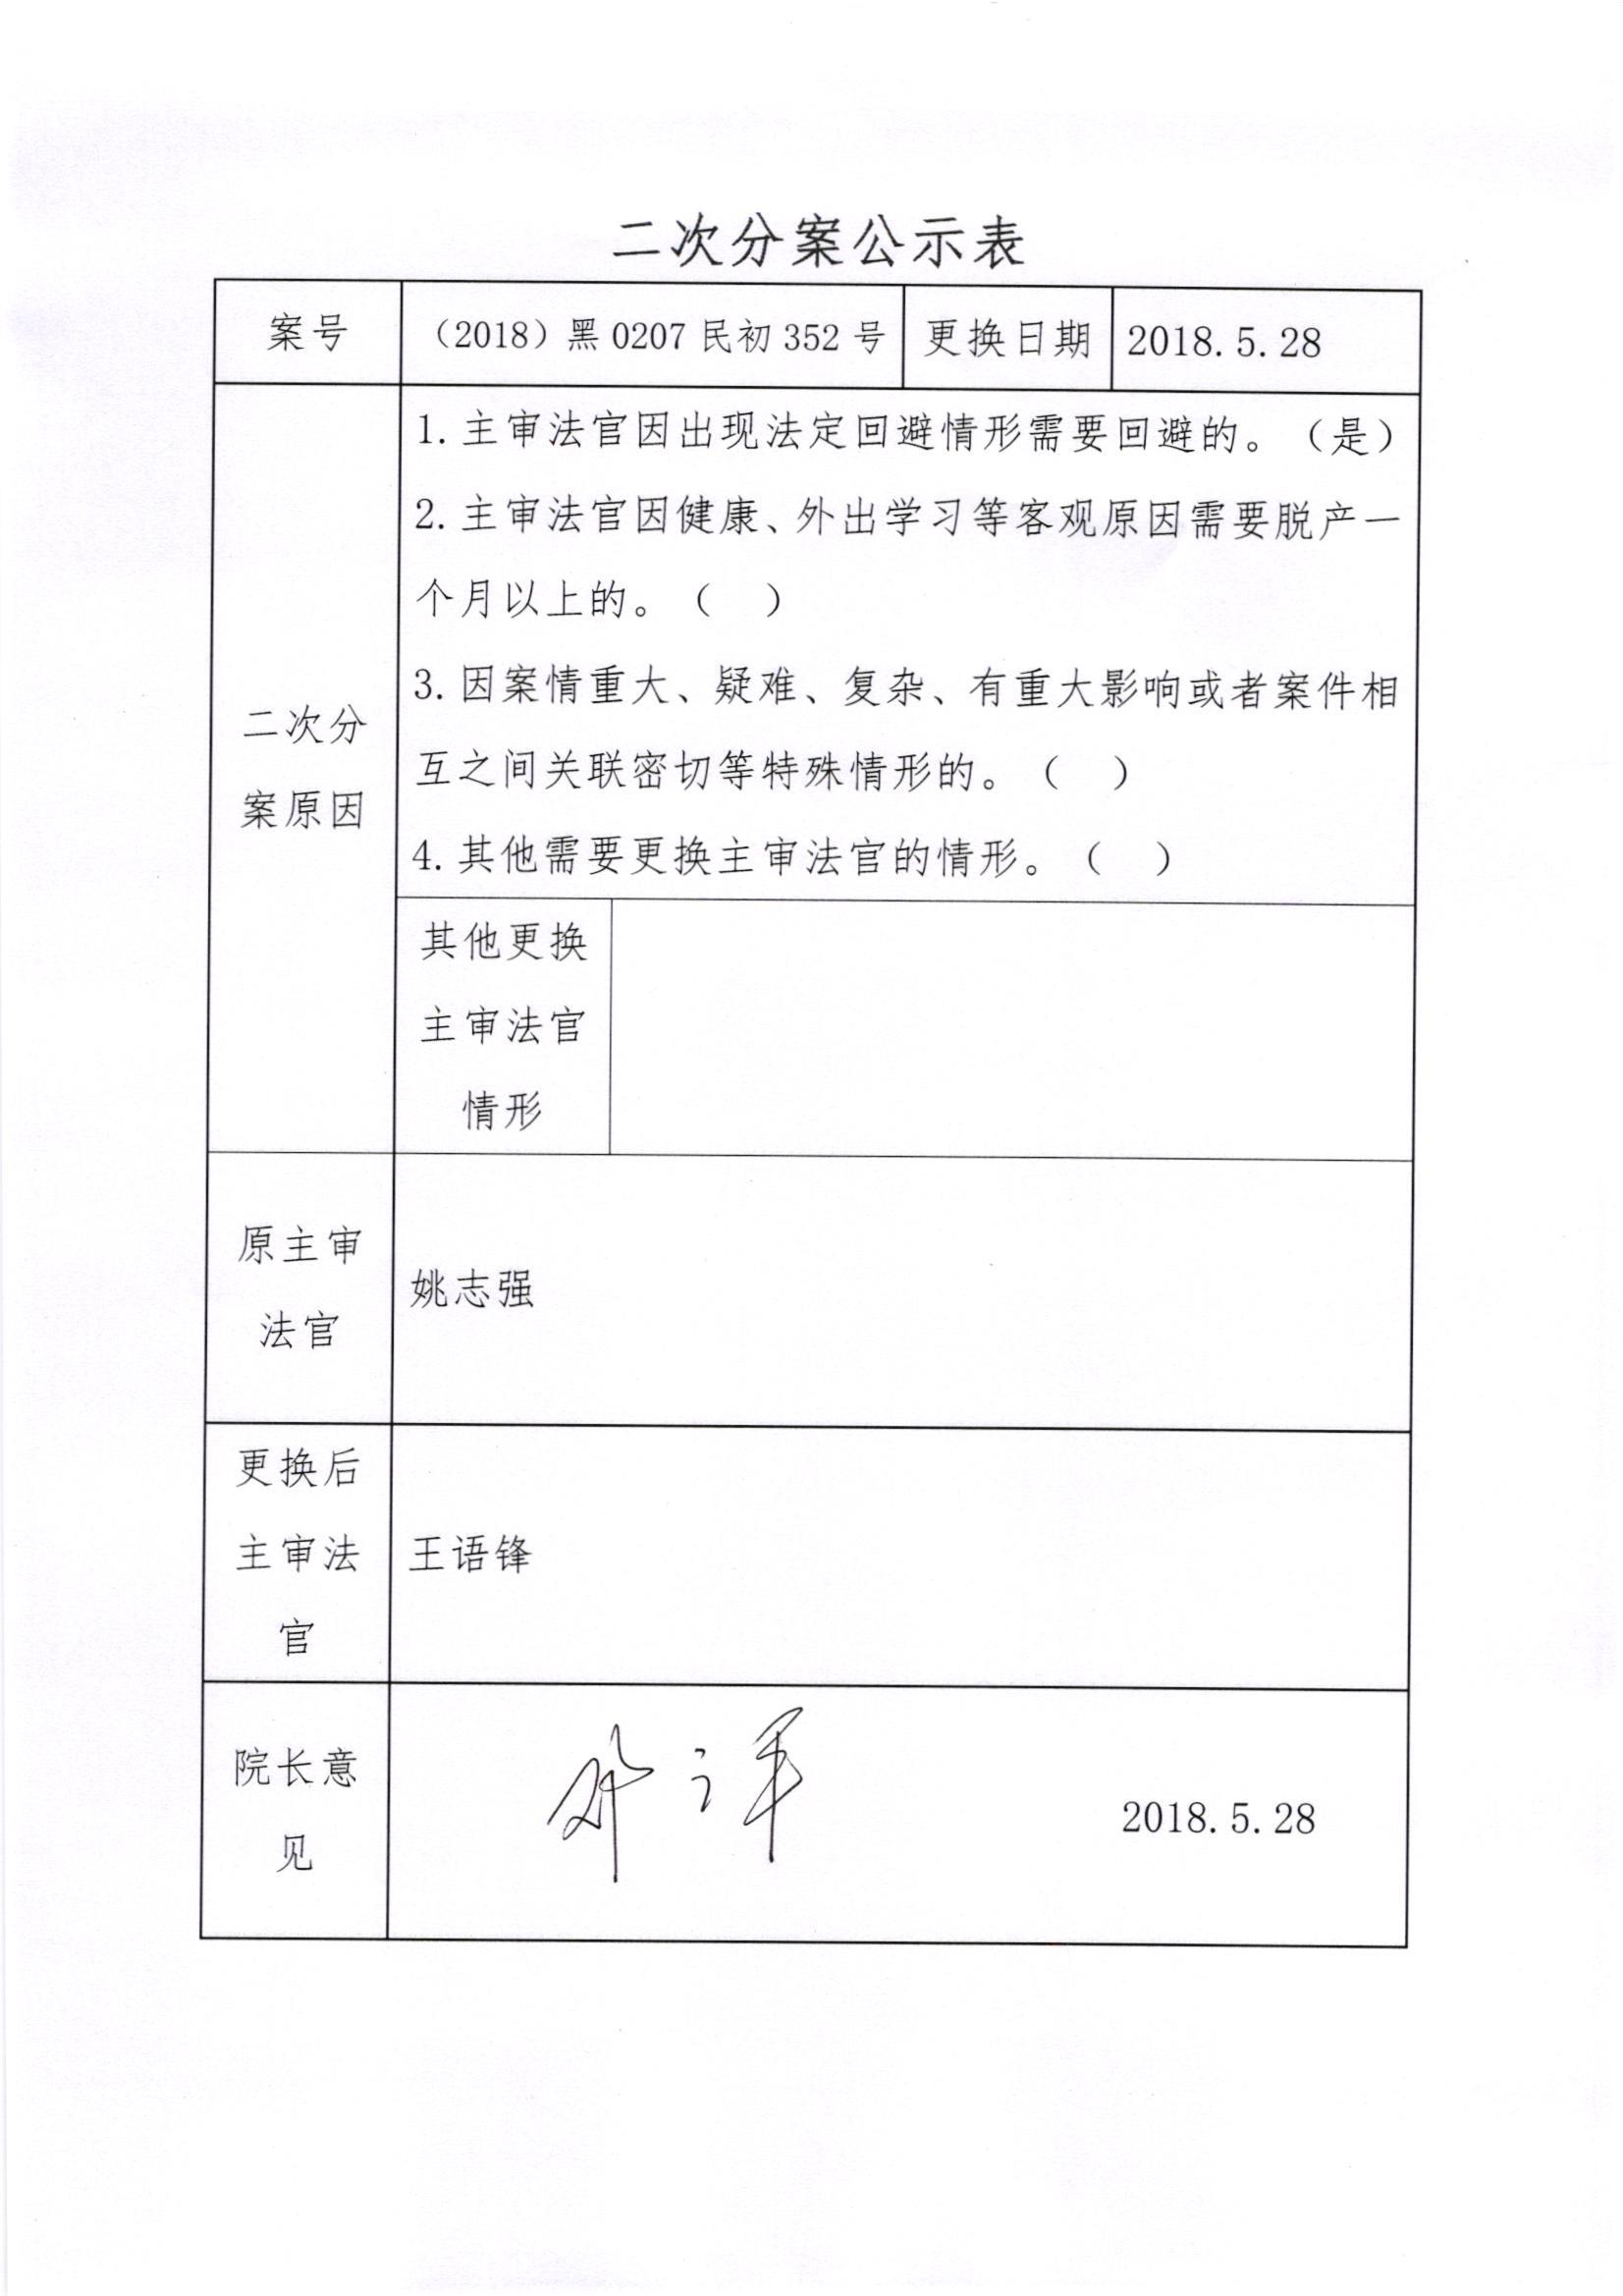 二次分案公示表
案号
（2018）黑 0207 民初 352 号
更换日期
2018.5.28
二次分
案原因
1.主审法官因出现法定回避情形需要回避的。（是）
2.主审法官因健康、外出学习等客观原因需要脱产一
个月以上的。（ ）
3.因案情重大、疑难、复杂、有重大影响或者案件相
互之间关联密切等特殊情形的。（ ）
4.其他需要更换主审法官的情形。（ ）
其他更换
主审法官
情形
原主审
法官
姚志强
更换后
主审法
官
王语锋
院长意
见
2018.5.28